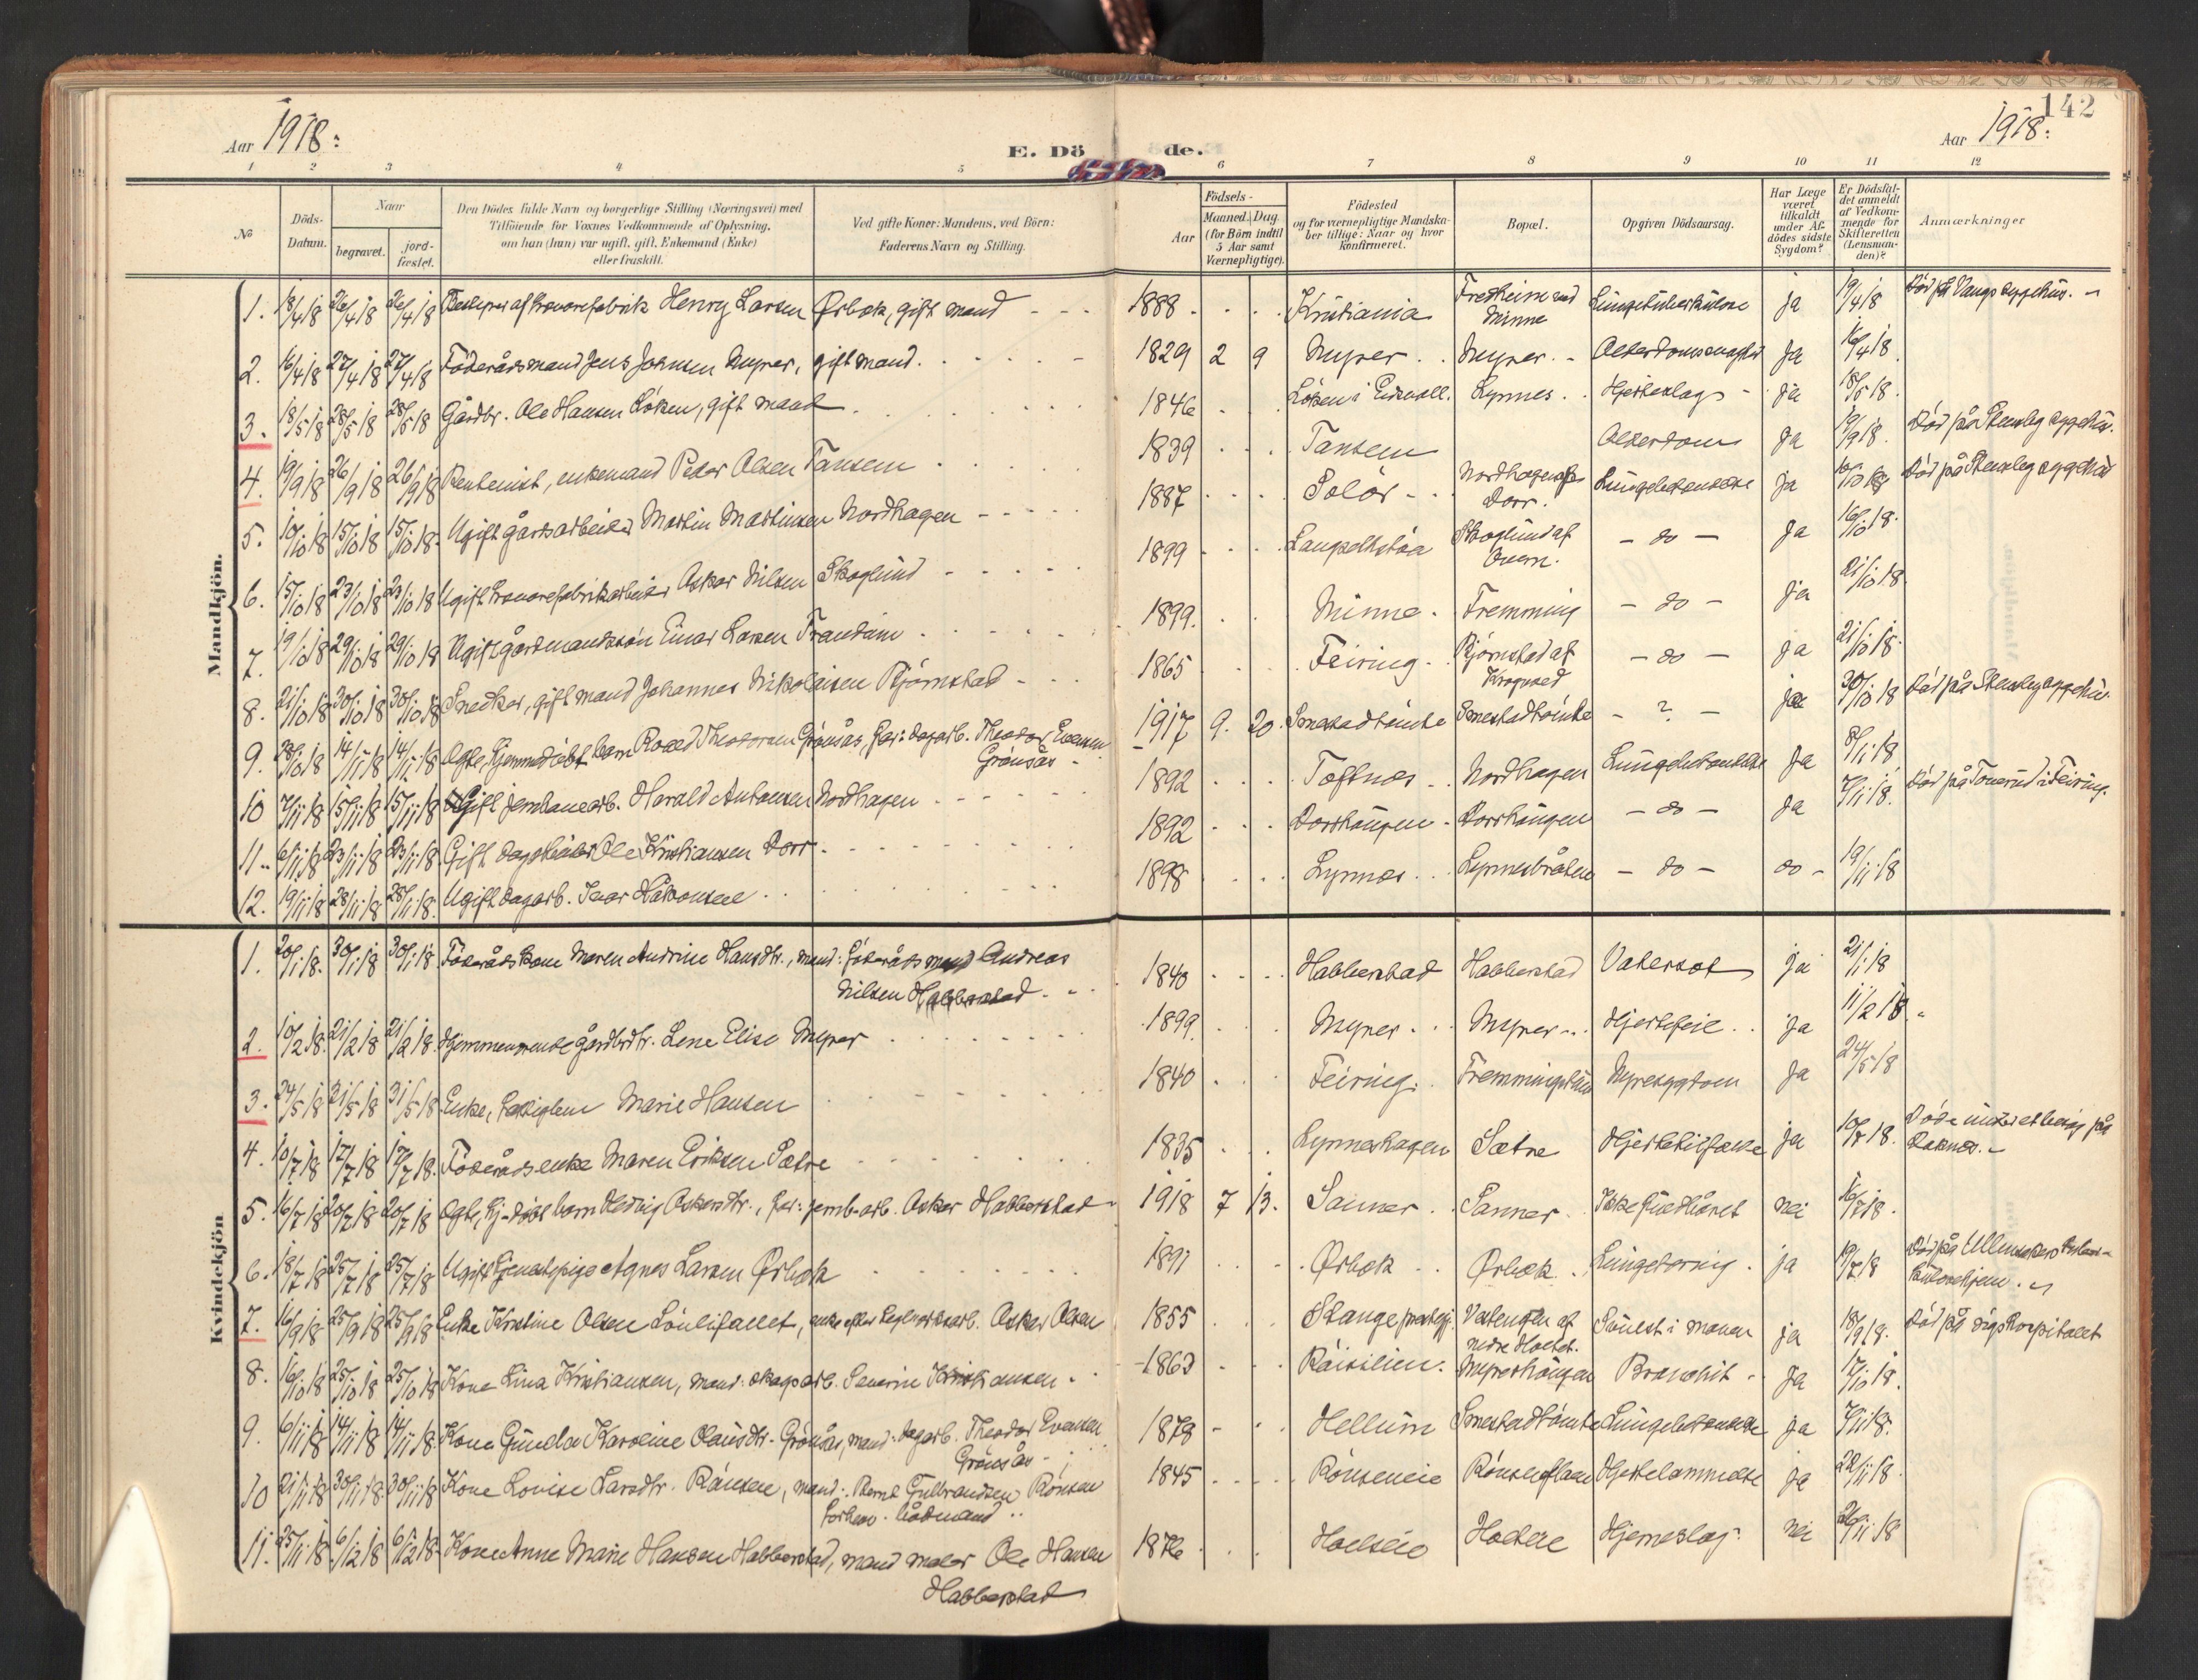 142
Aar 1918:
E. Döde.
Aar 1918:
1 2 3 4 5 6 7 8 9 10 11 12
No
Döds-Datum.
Naar
begravet.
jord-fæstet.
Den Dödes fulde Navn og borgerlige Stilling (Næringsvei) med
Tilföiende for Voxnes Vedkommende af Oplysning,
om han (hun) var ugift, gift, Enkemand (Enke)
eller fraskilt.
Ved gifte Koner: Mandens, ved Börn:
Faderens Navn og Stilling.
Födsels-
Aar
Maaned. Dag
(for Börn indtil
5 Aar samt
Værnepligtige).
Födested
og for værnepligtige Mandska-
ber tillige: Naar og hvor
konfirmeret.
Bopæl.
Opgiven Dödsaarsag.
Har Læge
været
tilkaldt
under Af-
dödes sidste
Sygdom?
Er Dödsfal-
det anmeldt
af Vedkom-
mende for
Skifteretten
(Lensman-
den)?
Anmærkninger
Mandkjön.
1. 18/4 18 26/4 18 26/4 18 Bestyrer af trævarefabrik Henry Larsen Ørbæk, gift mand 1888 Kristiania Fredheim ved Minne Lungetuberkulose ja 19/4 18 Död på Vangs sygehus.
2. 16/4 18 27/4 18 27/4 18 Föderådsmand Jens Johnsen Myrer, gift mand. 1829 2 9 Myrer Myrer Alderdomssvaghed ja 16/4 18
3. 18/5 18 28/5 18 28/5 18 Gårdbr. Ole Hansen Löken, gift mand 1846 Löken i Eidsvoll. Lynnes Hjerteslag ja 18/5 18.
4. 19/9 18 26/9 18 26/9 18 Rentenist, enkemand Peder Olsen Tansem 1839 Tansem Alderdom ja 19/9 18. Död på Stensby sygehus.
5. 10/10 18 15/10 18 15/10 18 Ugift gårdsarbeider Martin Martinsen Nordhagen 1887 Solör Nordhagen af Dorr. Lungebetændelse ja 10/10 18 Död på Stensby sygehus
6. 15/10 18 23/10 18 23/10 18 Ugift trævarefabrikarbeider Oskar Nilsen Skoglund 1899 Laupelhstöa Skoglund af Overn. - do - ja 16/10 18.
7. 19/10 18 29/10 18 29/10 18 Ugift gårdmandssön Einar Larsen Trandum 1899. Minne Fremming - do - ja 21/10 18
8. 21/10 18 30/10 18 30/10 18 Snedker, gift mand Johannes Nikolaisen Björnstad 1865 Feiring Björnstad af Krogsved - do - ja 21/10 18.
9. 28/10 18 14/11 18 14/11 18 Ægte, hjemmedöbt barn Roald Theodorsen Grönsås, far: dagarb. Theodor Evensen
Grönsås 1917 9. 20. Smestadtomte Smestadtomte - ? - ja 30/10 18 Död på Stensby sygehus.
10 7/11 18 15/11 18 15/11 18 Ugift jernbanearb. Harald Antonsen Nordhagen 1892 Toftnes Nordhagen Lungebetændelse ja 8/11 18
11 6/11 18 23/11 18 23/11 18. Gift dagarbeider Ole Kristiansen Dorr 1892 Dorrhaugen Dorrhaugen - do - ja 7/11 18. Död på Tonerud i Feiring.
12. 19/11 18 28/11 18 28/11 18. Ugift dagarb. Ivar Håkonsen 1898 Lynnes Lynnesbråten - do - do - 19/11 18
Kvindekjön
1. 20/1 18. 30/1 18 30/1 18 Föderådskone Maren Andrine Hansdtr., mand: föderådsmand Andreas
Nilsen Habberstad 1840 Habberstad Habberstad Vatersot ja 21/1 18
2. 10/2 18. 21/2 18 21/2 18. Hjemmeværende gårdbrdtr. Lene Elise Myrer 1899. Myrer Myrer Hjertefeil ja 11/2 18.
3. 24/5 18 31/5 18 31/5 18. Enke, fattiglem Marie Hansen 1840 Feiring Nyresygdom ja 24/5 18
4. 10/7 18 17/7 18 17/7 18. Föderådsenke Maren Eriksen Sætre 1835 Lynneshagen Sætre Hjertetilfælde ja 10/7 18. Döde under et besög på
5. 16/7 18 20/7 18 20/7 18 Ægte, hj-döbt barn Hedvig Oskarsdtr., far: jernb-arb. Oskar Habberstad 1918 7 13. Sanner Sanner Ikke fuldbåret nei 16/7 18.
6. 18/7 18 25/7 18 25/7 18 Ugift tjenestepige Agnes Larsen Ørbæk 1891 Ørbæk Ørbæk Lungetæring ja 19/7 18 Död på Ullensakers tuber-
kulosehjem.
7. 16/9 18 25/9 18 25/9 18 Enke Kristine Olsen Lönlifallet, enke efter teglverksarb. Oskar Olsen 1855 Stange prestegj. Vestengen af nedre Holtet. Svulst i maven ja 18/9 18. Död på rigshospitalet
8. 16/10 18 25/10 18 25/10 18 Kone Lina Kristiansen, mand: skogsarb. Severin Kristiansen 1863 Råisilien Myrershaugen Brændsit ja 17/10 18.
9. 6/11 18 14/11 18 14/11 18. Kone Gunda Karoline Olausdtr. Grönsås, mand: dagarb. Theodor Evensen
Grönsås 1878 Hellum Smestadtomte Lungebetændelse ja 7/11 18.
10 21/11 18 30/11 18. 30/11 18 Kone Lovise Larsdtr. Rånsen, mand: Bernt Gulbrandsen Rönsen
forhen. bådmand 1845 Rönseneie Hjertelammelse ja 22/11 18.
11. 25/11 18. 6/12 18 6/12 18 Kone Anne Marie Hansen Habberstad, mand maler Ole Hansen
Habberstad 1876 Holseie Hjerneslag nei 26/11 18